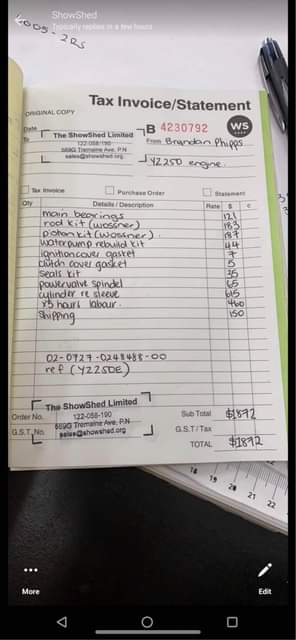 ShowShed
Typically replies in a few hours
Tax Invoice/Statement
ORIGINAL COPY
Date
To
The ShowShed Limited
122-058-190
569G Tremaine Ave, P.N
sales@showshed.org
B 4230792
WS
From Brandon Phipps
YZ250 engine.
Tax Invoice
Purchase Order
Statement
Qty Details / Description Rate $ c
main bearings 121
rod kit (wossner) 183
piston kit (wossner). 187
waterpump rebuild kit 44
ignition cover gasket 7
clutch cover gasket 5
seals kit 35
powervalve spindel 65
cylinder re sleeve 615
x5 hours labour. 460
Shipping 150
02-0727-0248488-00
ref (YZ250E)
Order No.
G.S.T. No.
The ShowShed Limited
122-058-190
569G Tremaine Ave, P.N
sales@showshed.org
Sub Total $1872
G.S.T/Tax
TOTAL $1872
18 19 20 21 22
More
Edit